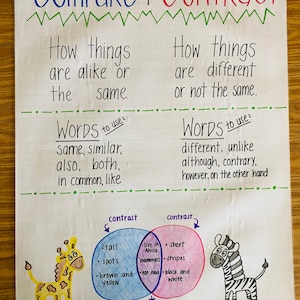 Compare + Contrast
How things
are alike or
the same.
How things
are different
or not the same.
Words to use:
same, similar,
also, both,
in common, like
Words to use:
different, unlike
although, contrary,
however, on the other hand
contrast
contrast
• tall
• spots
• brown and
yellow
• live in
Africa
• mammals
• short
• stripes
• black and
white